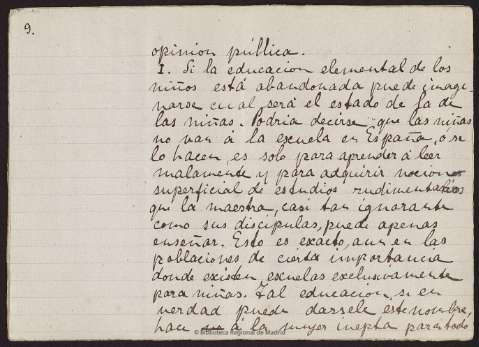 9.
opinion pública.
I. Si la educacion elemental de los
niños está abandonada puede imagi
narse cual será el estado de la de
las niñas. Podria decirse que las niñas
no van á la escuela en España, o si
lo hacen, es solo para aprender á leer
malamente y para adquirir nocion
superficial de estudios rudimentarios
que la maestra, casi tan ignorante
como sus discipulas, puede apenas
enseñar. Esto es exacto, aun en las
poblaciones de cierta importancia
donde existen escuelas exclusivamente
para niñas. Tal educacion, si en
verdad puede darsele este nombre,
hace á la mujer inepta para todo
© Biblioteca Regional de Madrid